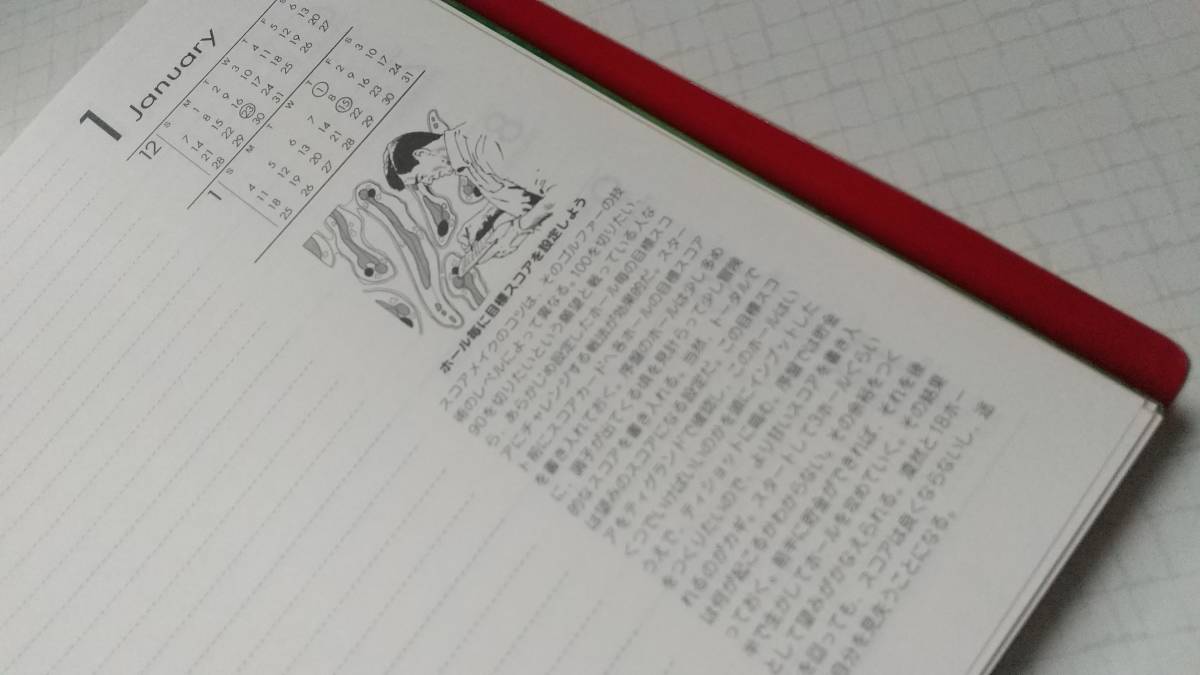 1 January
12
S M T W T F S
1 2 3 4 5 6
7 8 9 10 11 12 13
14 15 16 17 18 19 20
21 22 23 24 25 26 27
28 29 30 31
1
S M T W T F S
1 2 3
4 5 6 7 8 9 10
11 12 13 14 15 16 17
18 19 20 21 22 23 24
25 26 27 28 29 30 31
ホール毎に目標スコアを設定しよう
スコアメイクのコツは、そのゴルファーの技
術のレベルによって異なる。100を切りたい、
90を切りたいという願望と戦っている人な
ら、あらかじめ設定したホール毎の目標スコ
アにチャレンジする戦法が効果的だ。スター
ト前にスコアカードへ各ホールの目標スコア
を書き入れておく。序盤のホールは少し多め
に、調子が出てくる頃を見計らって少し冒険
的なスコアを書き入れる。当然、トータルで
は望みのスコアになる設定だ。この目標スコ
アをティグランドで確認し、このホールはい
くつでいけばいいのかを頭にインプットした
うえで、ティショットに臨む。序盤では貯金
をつくりたいので、より甘いスコアを書き入
れるのがカギ。スタートして3ホールぐらい
は何が起こるかわからない。その余裕をつく
っておく。前半に貯金ができれば、それを後
半で生かしてホールを攻めていく。その結果
として望みがかなえられる。漫然と18ホー
を回っても、スコアは良くならないし、
自分を見失うことになる。